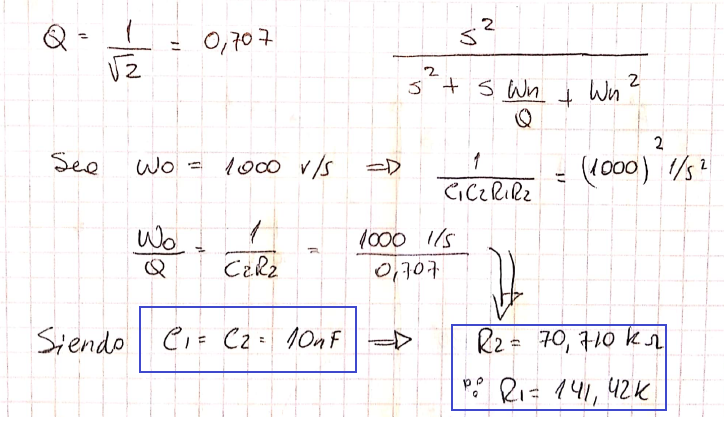 Q = 1/√2 = 0,707
s² / (s² + s Wn/Q + Wn²)
Sea Wo = 1000 r/s => 1/(C1C2R1R2) = (1000)² 1/s²
Wo/Q = 1/(C2R2) = 1000 1/s / 0,707
Siendo C1 = C2 = 10nF => R2 = 70,710 kΩ
R1 = 141,42K